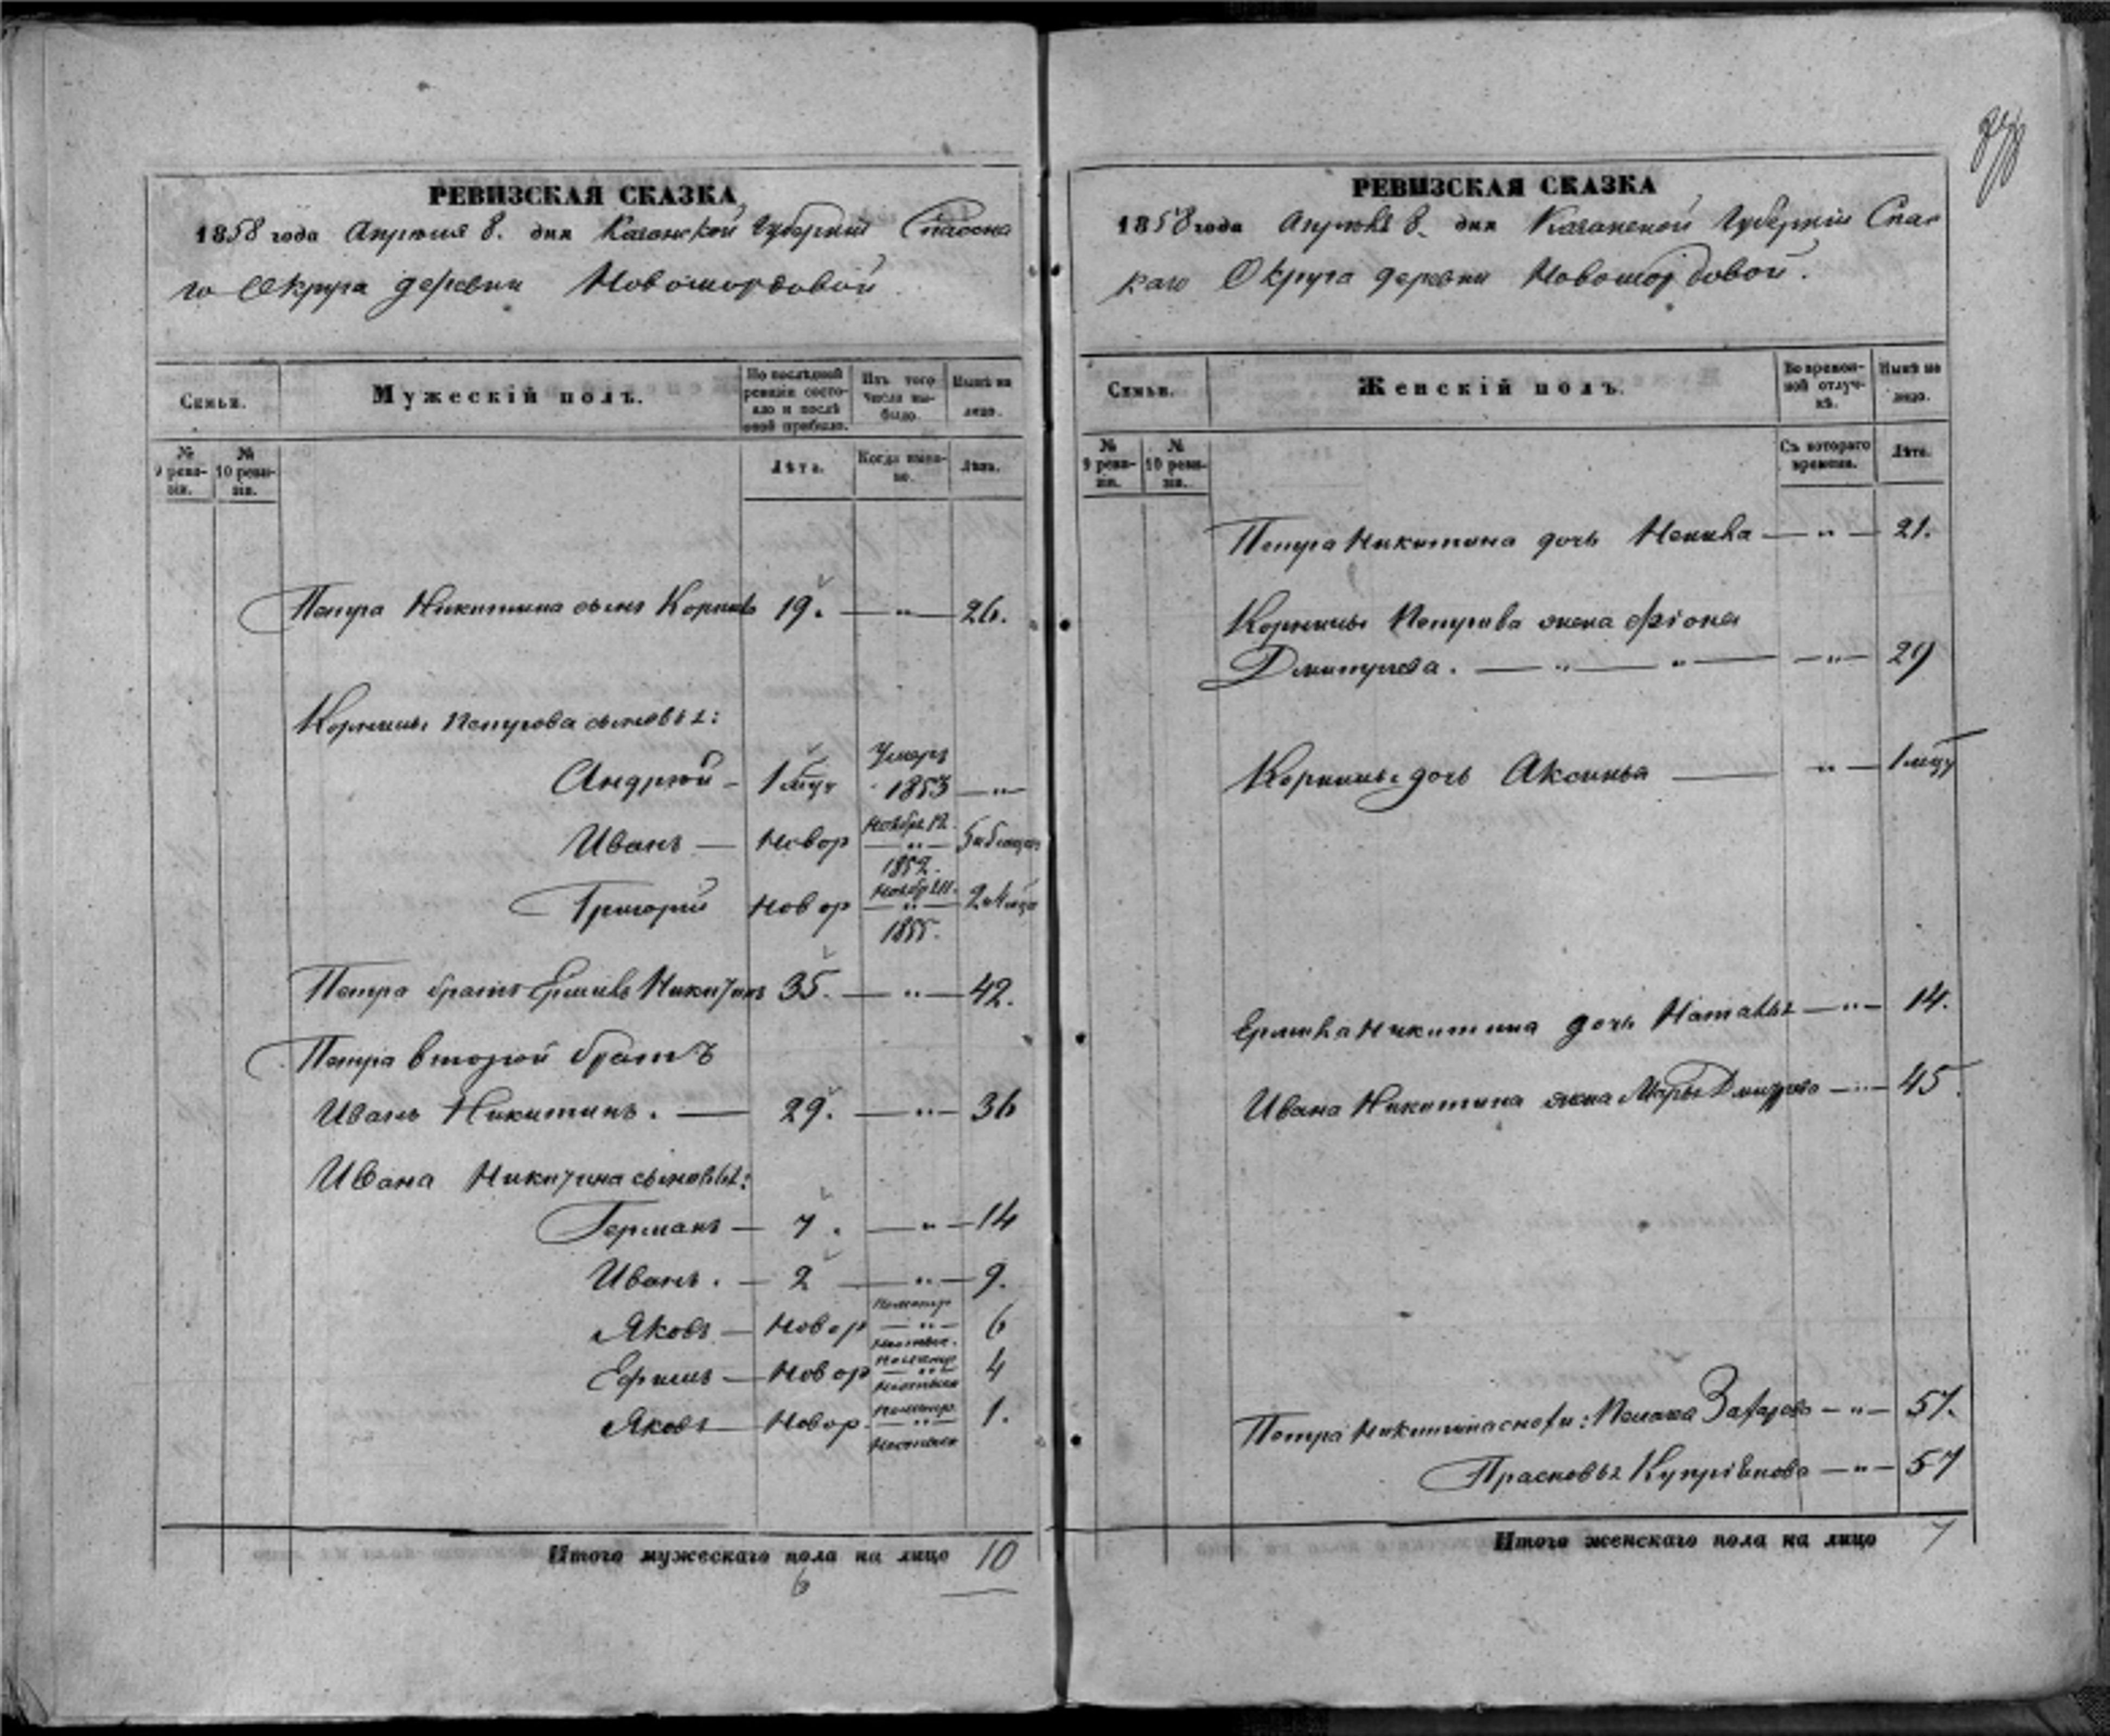 РЕВИЗСКАЯ СКАЗКА
1858 года Апреля 8. дня Казанской Губерніи Спасска
го Округа деревни Новомордовой
Семьи.
Мужескій полъ.
По послѣдней ревизіи состояло и послѣ оной прибыло.
Изъ того числа выбыло.
Нынѣ на лицо.
№ 9 ревизіи.
№ 10 ревизіи.
Лѣта.
Когда имянно.
Лѣта.
Петра Никитина сынъ Корнилъ 19. — " — 26.
Корнилы Петрова сыновья:
Андрей — 1 мцъ Умеръ 1853 — "
Иванъ — Новор Ноября 12. — " — 1852.
Григорій Новор — " — 1855.
Петра братъ Ермилъ Никитинъ 35. — " — 42.
Петра второй братъ
Иванъ Никитинъ. — 29. — " — 36
Ивана Никитина сыновья:
Германъ — 7. — " — 14
Иванъ. — 2 — " — 9.
Яковъ — Новор — " — 6
Ефимъ — Новор — " — 4
Яковъ — Новор. — " — 1.
Итого мужескаго пола на лицо 10
6
РЕВИЗСКАЯ СКАЗКА
1858 года Апрѣля 8. дня Казанской Губерніи Спас
каго Округа деревни Новомордовой.
Семьи.
Женскій полъ.
Во временной отлучкѣ.
Нынѣ на лицо.
№ 9 ревизіи.
№ 10 ревизіи.
Съ котораго времени.
Лѣта.
Петра Никитина дочь — " — 21.
Корнилы Петрова жена Фіона
Дмитріева. — " — " — " — 29
Корнилы дочь Аксинья — " — 1 мцъ
Ермила Никитина дочь Наталья — " — 14.
Ивана Никитина жена Марья Дмитрева — " — 45.
Петра Никитина снохи: Захарова — " — 57.
Прасковья Купріянова — " — 57
Итого женскаго пола на лицо 7